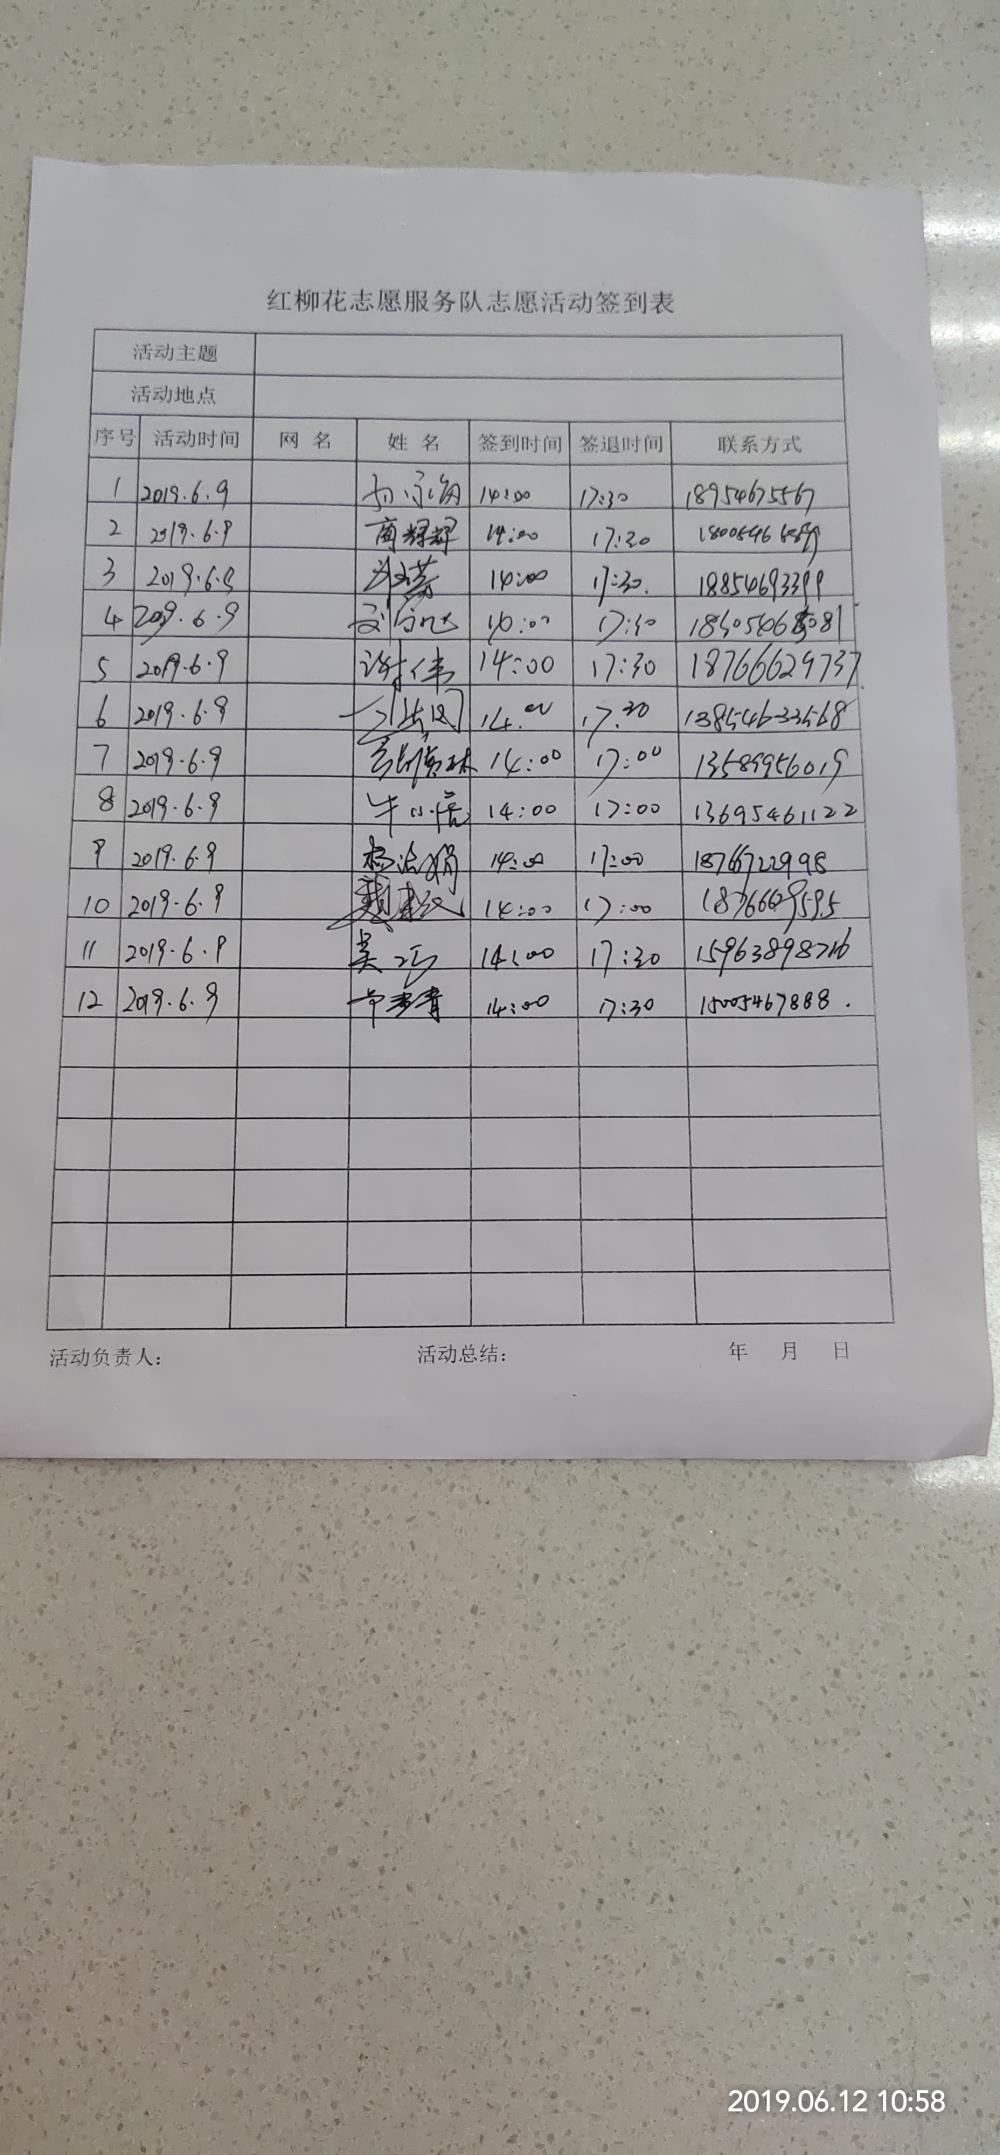 红柳花志愿服务队志愿活动签到表
活动主题
活动地点
序号 活动时间 网 名 姓 名 签到时间 签退时间 联系方式
1 2019.6.9 14:00 17:30 18954675567
2 2019.6.9 商辉辉 14:00 17:30
3 2019.6.9 14:00 17:30. 18854693399
4 2019.6.9 14:00 17:30
5 2019.6.9 谢伟 14:00 17:30 18766629737
6 2019.6.9 14:00 17:30 13854633568
7 2019.6.9 14:00 17:00 13589956019
8 2019.6.9 牛小倍 14:00 17:00 13695461122
9 2019.6.9 14:00 17:00 18766722998
10 2019.6.9 14:00 17:00 18766629595
11 2019.6.9 14:00 17:30
12 2019.6.9 14:00 17:30 15005467888.
活动负责人: 活动总结: 年 月 日
2019.06.12 10:58